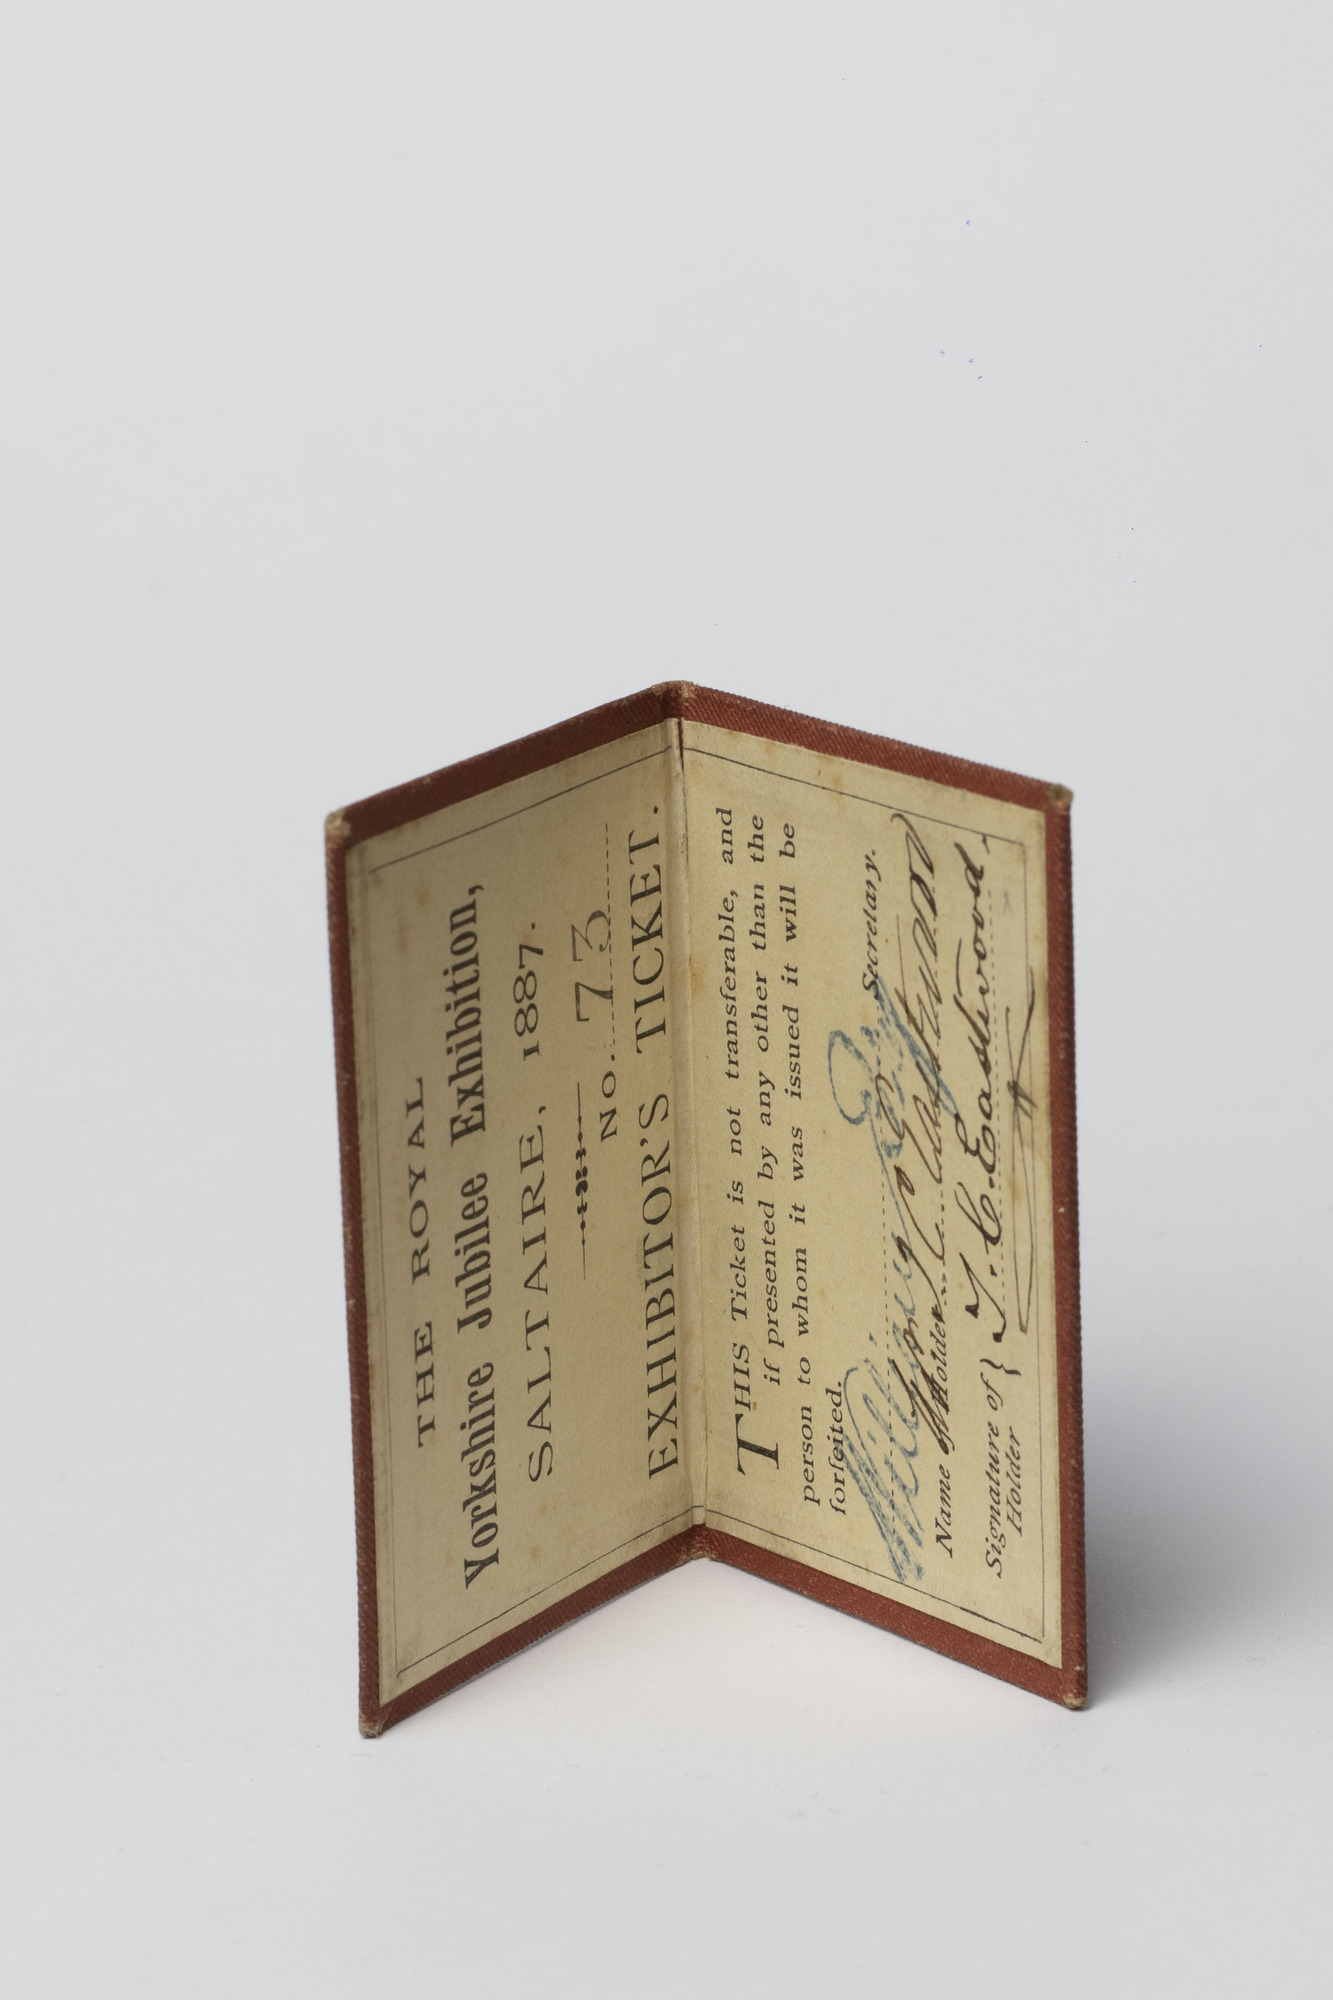 THE ROYAL
Yorkshire Jubilee Exhibition,
SALTAIRE, 1887.
No. 73
EXHIBITOR'S TICKET.
THIS Ticket is not transferable, and
if presented by any other than the
person to whom it was issued it will be
forfeited.
Secretary.
Name of Holder
Signature of } T. C. Eastwood.
Holder